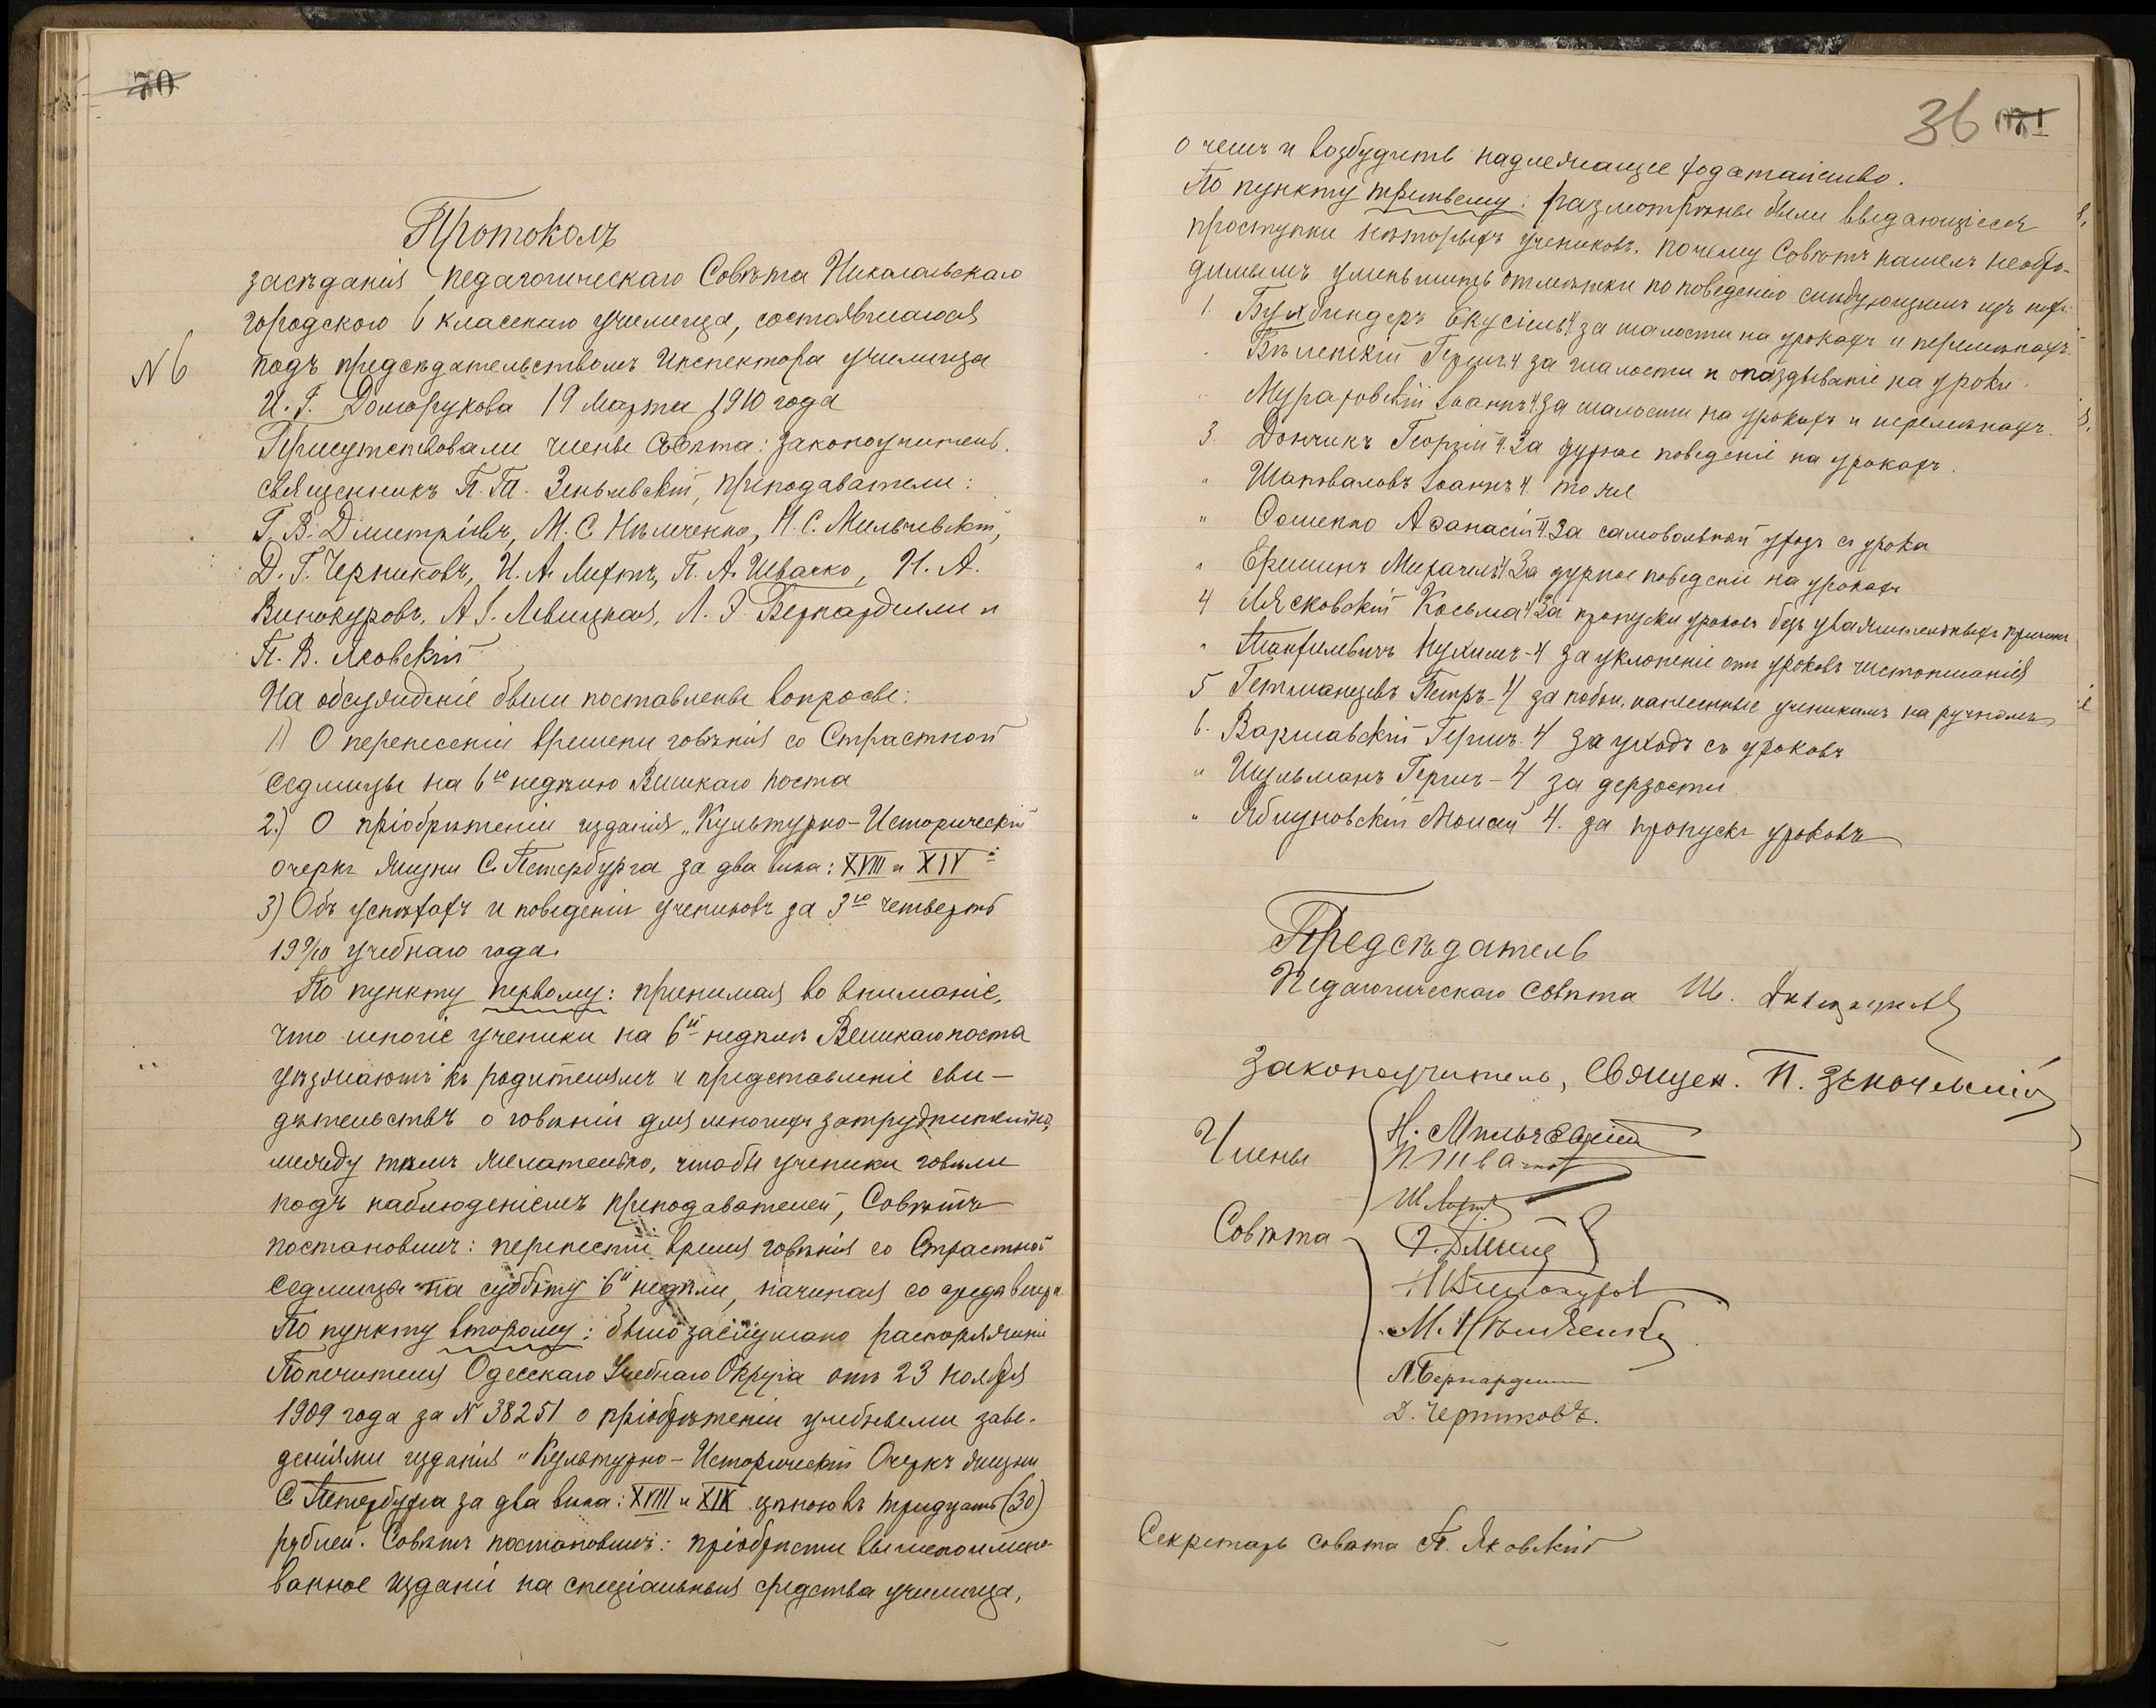 70
Протоколъ
засѣданія педагогическаго Совѣта Николаевскаго
городского 6 класснаго училища, состоявшагося
N 6
подъ предсѣдательствомъ Инспектора училища
И. Г. Долгорукова 19 Марта 1910 года
Присутствовали члены Совѣта: законоучитель,
священникъ П. П. Зеньчевскій, преподаватели:
Г. В. Дмитріевъ, М. С. Нѣмченко, Н. С. Мильчевскій,
Д. Г. Черниковъ, И. А. Лихтъ, П. А. Швачко, Н. А.
Винокуровъ, А. І. Левицкая, Л. Э. Бернарделли и
П. В. Яковскій
На обсужденіе были поставлены вопросы:
1) О перенесеніи времени говѣнія со Страстной
Седмицы на 6ю недѣлю Великаго поста
2.) О пріобрѣтеніи изданія „Культурно-Историческій
очеркъ жизни С. Петербурга за два вѣка: XVIII и XIX
3) Объ успѣхахъ и поведеніи учениковъ за 3ю четверть
19 9/10 учебнаго года.
По пункту первому: принимая во вниманіе,
что многіе ученики на 6й недѣлѣ Великаго поста
уѣзжаютъ къ родителямъ и представленіе сви-
дѣтельствъ о говѣніи для многихъ затруднительно,
между тѣмъ желательно, чтобы ученики говѣли
подъ наблюденіемъ преподавателей, Совѣтъ
постановилъ: перенести время говѣнія со Страстной
Седмицы на субботу 6й недѣли, начиная со среды вечера
По пункту второму: было заслушано распоряженіе
Попечителя Одесскаго Учебнаго Округа отъ 23 ноября
1909 года за N 38251 о пріобрѣтеніи учебными заве-
деніями изданія "Культурно-Историческій Очеркъ жизни
С. Петербурга за два вѣка: XVIII и XIX цѣною въ тридцать (30)
рублей. Совѣтъ постановилъ: пріобрѣсти вышепоимено-
ванное изданіе на спеціальныя средства училища,
36 071
о чемъ и возбудить надлежащее ходатайство.
По пункту третьему: разсмотрѣны были выдающіеся
проступки нѣкоторыхъ учениковъ, почему Совѣтъ нашелъ необхо-
димымъ уменьшить отмѣтки по поведенію слѣдующимъ изъ нихъ:
1. Бухбиндеръ Екусіель 4 за шалости на урокахъ и перемѣнахъ.
" Бѣленькій Гершъ 4 за шалости и опаздываніе на уроки.
" Мураховскій Іоаннъ 4 за шалости на урокахъ и перемѣнахъ.
3. Дончикъ Георгій 4. За дурное поведеніе на урокахъ.
" Шаповаловъ Іоаннъ 4. тоже
" Сошенко Аѳанасій 4 За самовольный уходъ съ урока
" Еришинъ Михаилъ 4 За дурное поведеніе на урокахъ
4 Лясковскій Косьма 4 За пропуски уроковъ безъ уважительныхъ причинъ
" Манфилевичъ Нухимъ - 4 за уклоненіе отъ уроковъ чистописанія
5 Гетманцевъ Петръ - 4 за побои, нанесенные ученикамъ на ручномъ
6. Варшавскій Гершъ. 4 за уходъ съ уроковъ
" Шульманъ Гершъ - 4 за дерзости
" Яблуновскій Моисей 4. за пропускъ уроковъ
Предсѣдатель
Педагогическаго Совѣта
Законоучитель, Священ. П. Зеночевскій
Члены
Совѣта
Н. Мильчевскій
П. Швачко
И. Лихтъ
Г. Дмит
Н. Винокуровъ
М. Нѣмченко
Л. Бернарделли
Д. Черниковъ.
Секретарь совѣта П. Яковскій